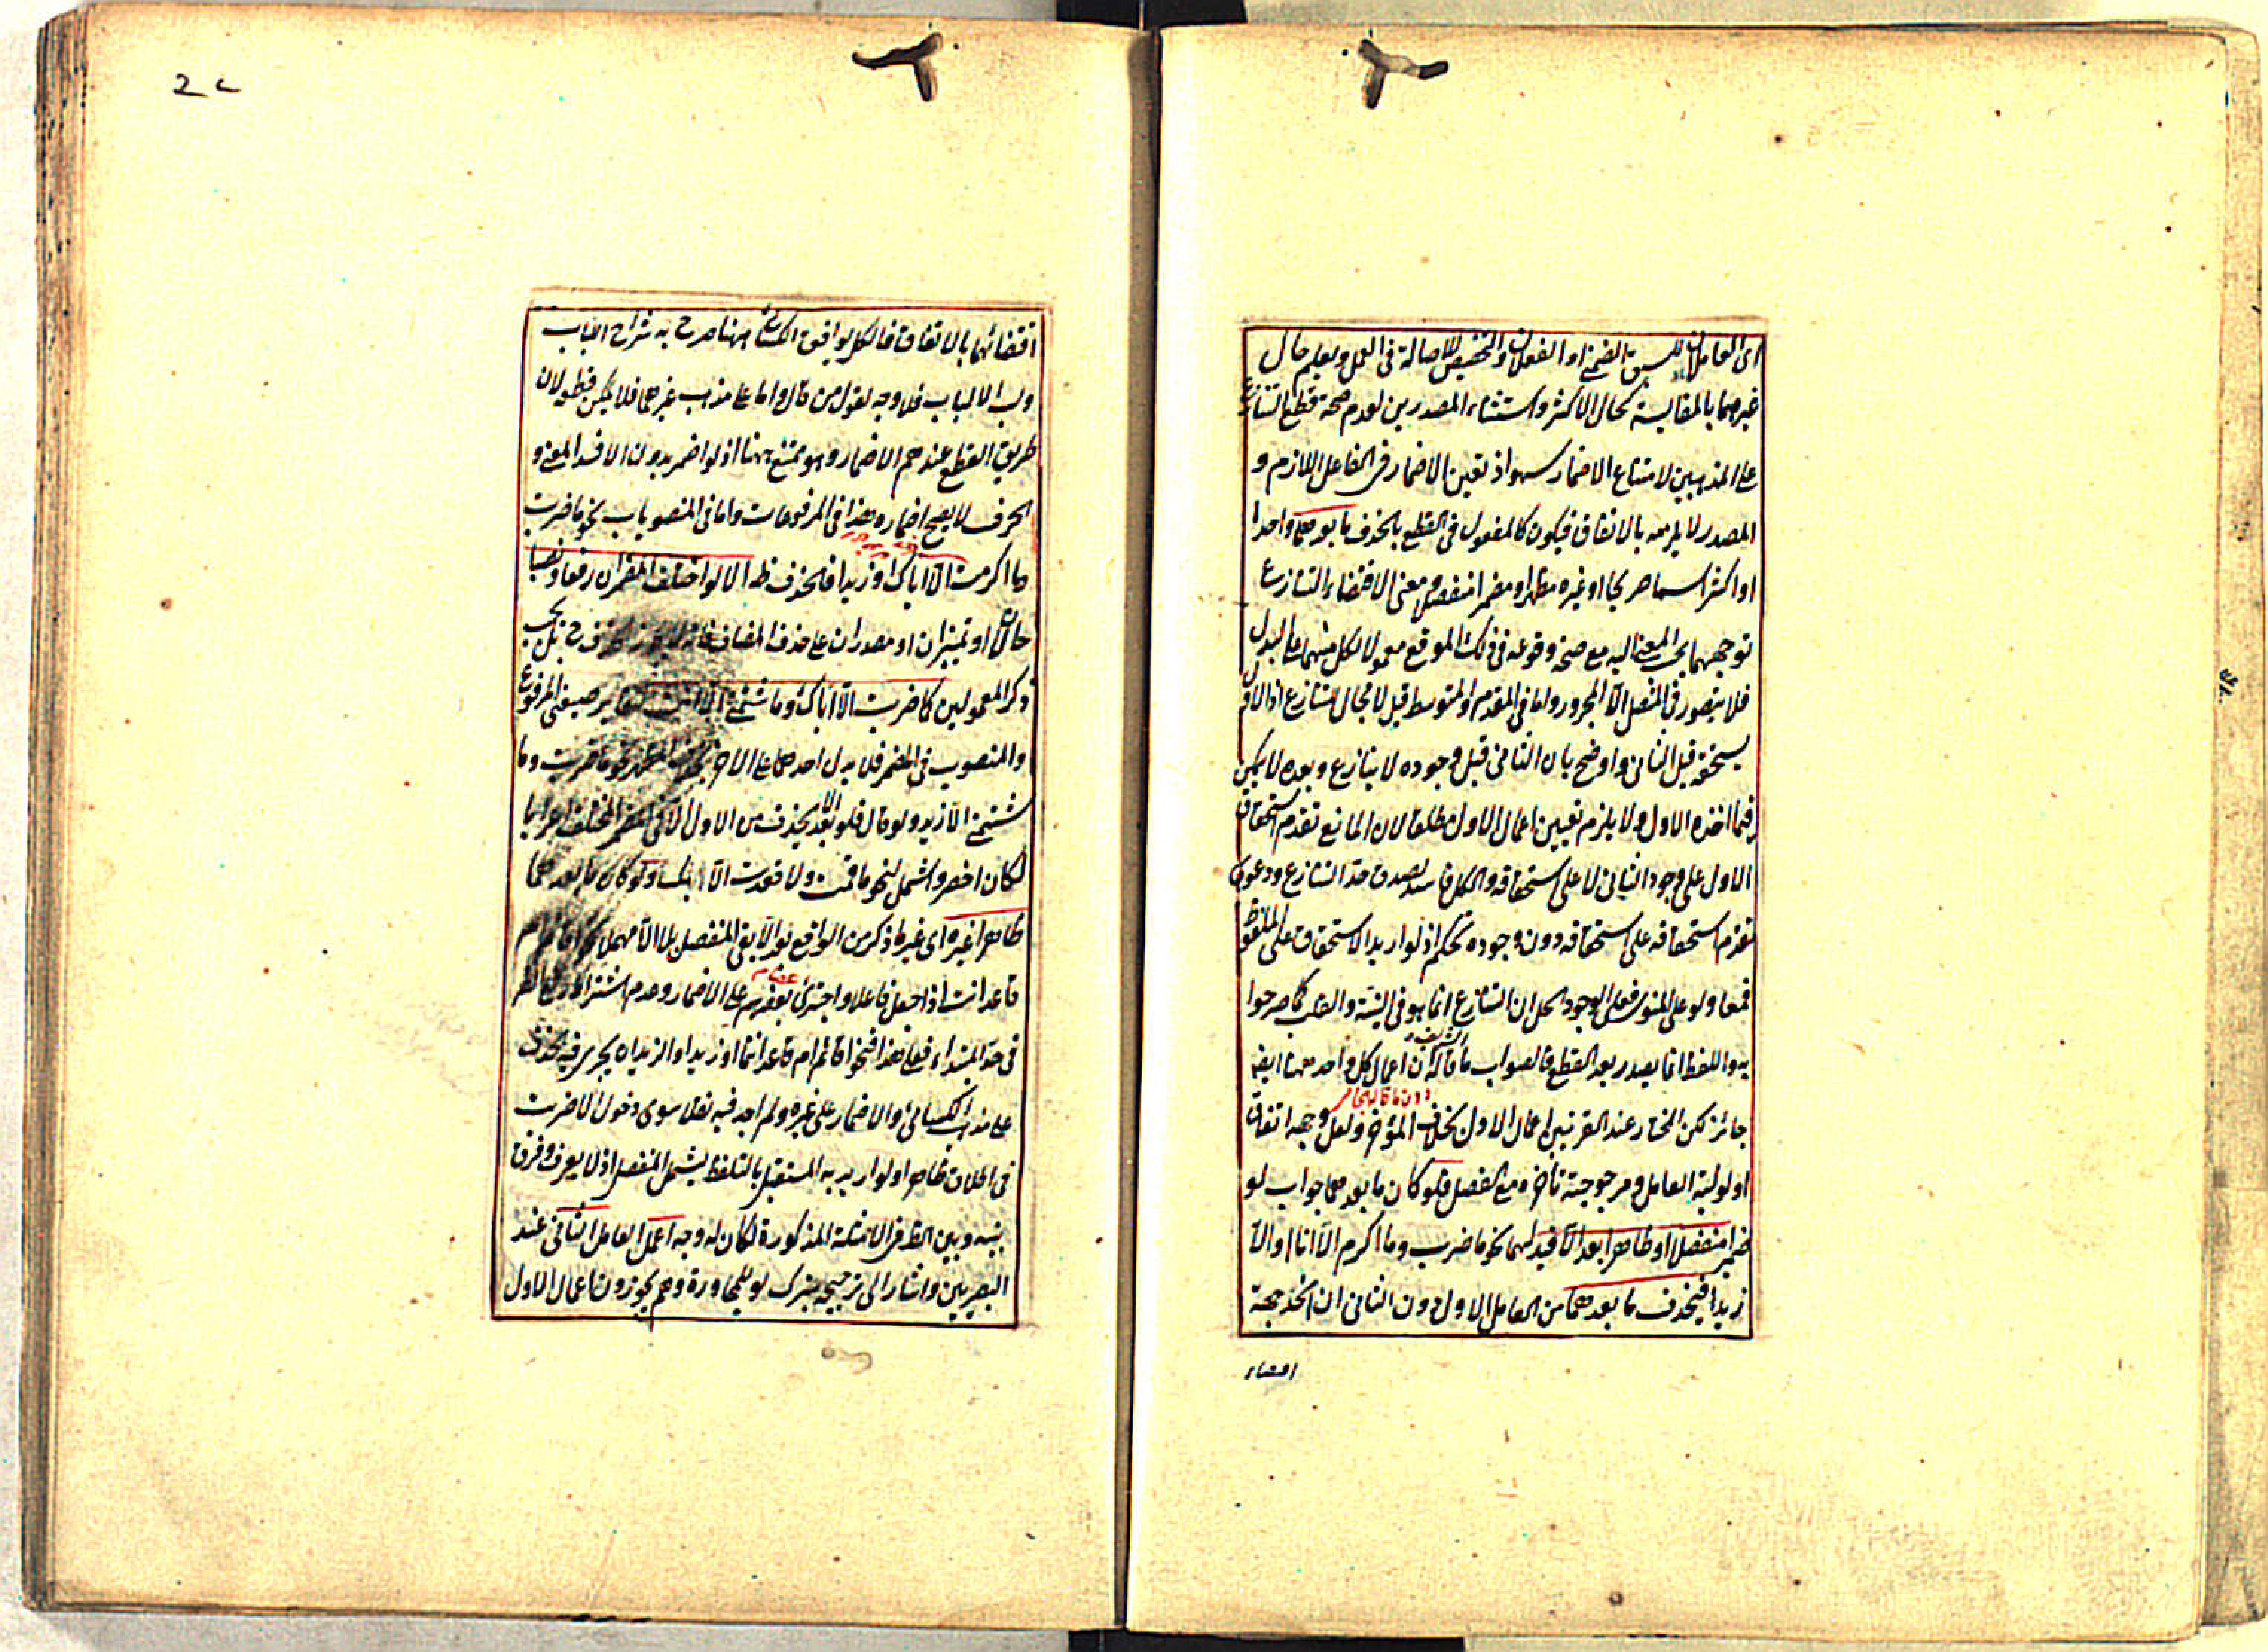 اى العاملان لسبق الضمنى او الفعلان والتخصيص للاصالة فى العمل ويعلم حال
غيرهما بالمقايسة كحال الاكثر واستثناء المصدرين لعدم صحة قطع التنازع
على المذهبين لامتناع الاضمار سهو اذ تعين الاضمار فى الفاعل اللازم و
المصدر لا يلزمه بالاتفاق فيكون كالمفعول فى القطع بالحذف ما بعدهما واحدا
او اكثر اسما صريحا او غيره مظهرا ومضمرا منفصلا معنى الاقتضاء والتنازع
توجههما بحسب المعنى اليه مع صحة وقوعه فى ذلك الموقع معمولا لكل منهما على البدل
فلا يتصور فى المتصل الا المجرور واما فى المقدم والمتوسط قيل لا مجال للتنازع اذ الاول
يستحقه قبل الثانى واوضح بان الثانى قبل وجوده لا ينازع وبعده لا يمكن
فيما اخذه الاول ولا يلزم تعيين اعمال الاول مطلقا لان المانع تقدم استحقاق
الاول على وجود الثانى لا على استحقاقه والكل فاسد لصدق حد التنازع ودعوى
تقدم استحقاقه على استحقاقه دون وجوده تحكم اذ لو اريد الاستحقاق على الملفوظ
فمعا ولو على المنوى فعلى الوجود لحل ان التنازع انما هو فى النية والقلب كما صرحوا
به واللفظ انما يصدر بعد القطع فالصواب ما قاله ان اعمال كل واحد منهما ايضا
جائز لكن المختار عند الفريقين اعمال الاول بخلاف المؤخر ولعل وجهه اتفاق
اولولية العامل ومرجوحية تأخره مع الفصل فلو كان ما بعدهما جواب لو
ضميرا منفصلا او ظاهرا بعد الا قيد لهما نحو ما ضرب وما اكرم الا انا او الا
زيدا فيحذف ما بعدهما من العامل الاول دون الثانى ان اتحد جهة
اقتضاء
اقتضائهما بالاتفاق فالكل يوافق الكسائى ههنا صرح به شراح اللباب
ولب الالباب فلا وجه لقول من قال واما على مذهب غيرهما فلا يمكن قطعه لان
طريق القطع عندهم الاضمار وهو ممتنع ههنا اذ لو اضمر بدون الا فسد المعنى و
الحرف لا يصح اضماره هذا فى المرفوعات واما فى المنصوبات نحو ما ضربت
وما اكرمت الا اياك او زيدا فالحذف ظاهر الا لو اختلف المضمران رفعا ونصبا
حالان او تمييزان او مصدران على حذف المضاف فانه لا يجوز الحذف ح بل يجب
ذكر المعمولين كما ضربت الا اياك وما شتمنى الا انت لتغاير صيغتى المرفوع
والمنصوب فى المضمر فلا يدل احدهما على الاخر بخلاف المظهر نحو ما ضربت وما
شتمنى الا زيد ولو قال فلو بعد الا يحذف من الاول الا فى المضمر المختلف اعرابا
لكان اخصر واشمل لنحو ما قمت ولا قعدت الا بك ولو كان ما بعدهما
ظاهرا غيره اى غير ما ذكر من الواقع بعد الا بقى المنفصل بلا الا مهملا نحو اقائم ام
قاعد انت اذا جعل فاعلا واجترئ بعضهم على الاضمار وعدم اشتراط
فى حد المبتداء فعلى هذا فنحو اقائم ام قاعد انتما او زيد او الزيدان يجرى فيه الحذف
على مذهب الكسائى والاضمار على غيره ولم اجد فيه نقلا سوى دخول الا ضربت
فى اطلاق ظاهرا ولو اريد به المستقبل بالتلفظ يشمل المنفصل اذ لا يعرف فرق
بينه وبين الظاهر فى الامثلة المذكورة لكان له وجه اعمل العامل الثانى عند
البصريين واشار الى ترجيحه بترك لو للمجاورة وهم يجوزون اعمال الاول